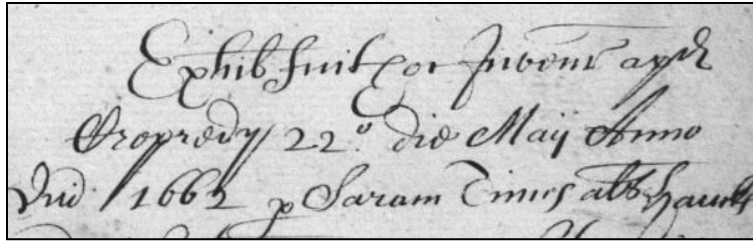 Exhib fuit hor Invenr apud
Cropredy 22º die Maij Anno
Dni 1662 p Saram Times als Hauck